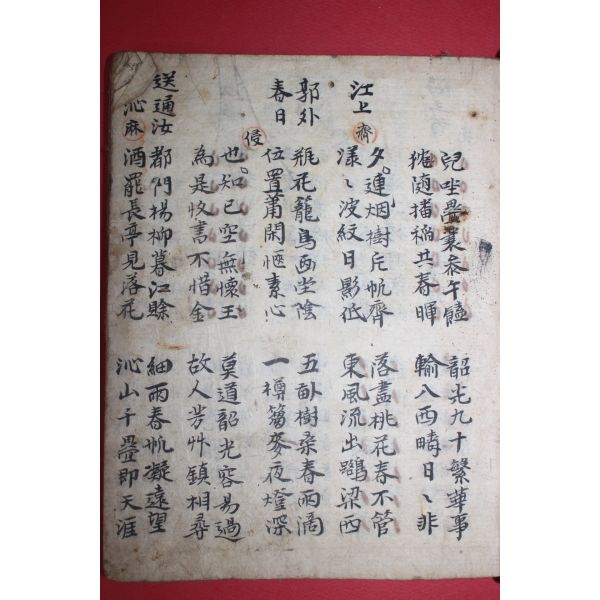 兒坐疊裏忝午饁 韶光九十繁華事
隨播福共春暉 輸入西疇日〻非
江上 齊
夕連烟樹片帆齊 落盡桃花春不管
漾〻波紋日影低 東風流出梁西
郭外
春日 侵
瓶花籠鳥西坐陰 五畝樹桑春雨滴
位置蕭閑愜素心 一樽蒭麥夜燈深
也知已空無懷王 莫道韶光容易過
為是收書不惜金 故人芳艸鎮相尋
送邇汝
沁 麻
都門楊柳暮江賒 細雨春帆凝遠望
酒罷長亭見落花 沁山千疊即天涯